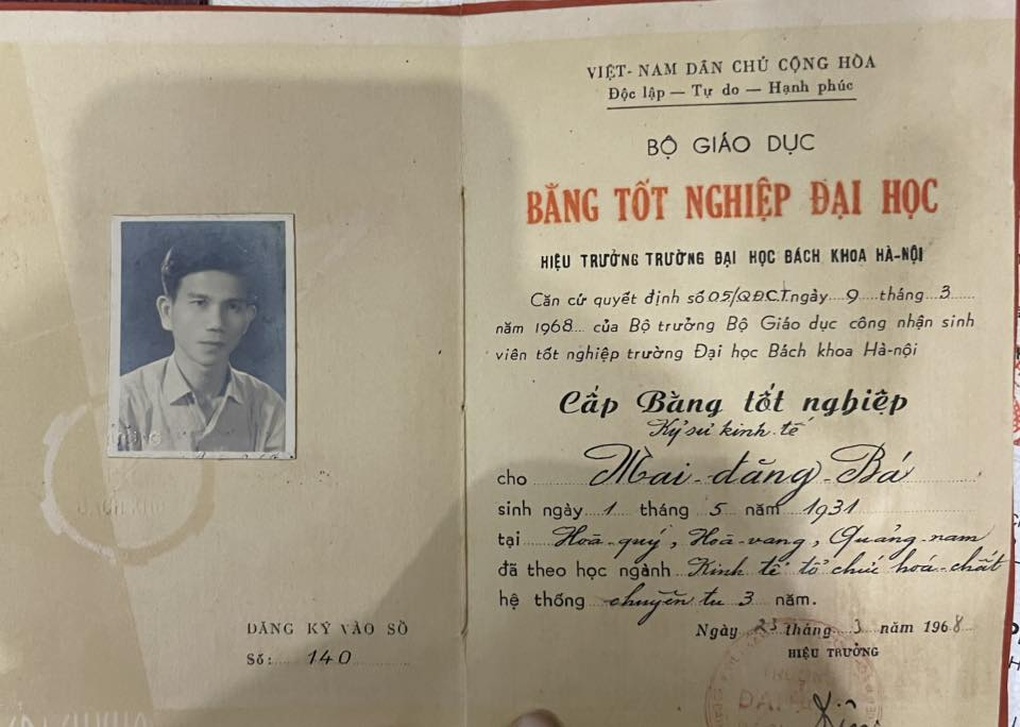 ĐĂNG KÝ VÀO SỔ
Số: 140
VIỆT-NAM DÂN CHỦ CỘNG HÒA
Độc lập — Tự do — Hạnh phúc
BỘ GIÁO DỤC
BẰNG TỐT NGHIỆP ĐẠI HỌC
HIỆU TRƯỞNG TRƯỜNG ĐẠI HỌC BÁCH KHOA HÀ-NỘI
Căn cứ quyết định số 05/QĐ.C.T. ngày 9 tháng 3
năm 1968 của Bộ trưởng Bộ Giáo dục công nhận sinh
viên tốt nghiệp trường Đại học Bách khoa Hà-nội
Cấp Bằng tốt nghiệp
Kỹ sư kinh tế
cho Mai-đăng-Bá
sinh ngày 1 tháng 5 năm 1931
tại Hoà-quý, Hoà-vang, Quảng-nam
đã theo học ngành Kinh tế tổ chức hoá-chất
hệ thống chuyên tu 3 năm.
Ngày 23 tháng 3 năm 1968
HIỆU TRƯỞNG